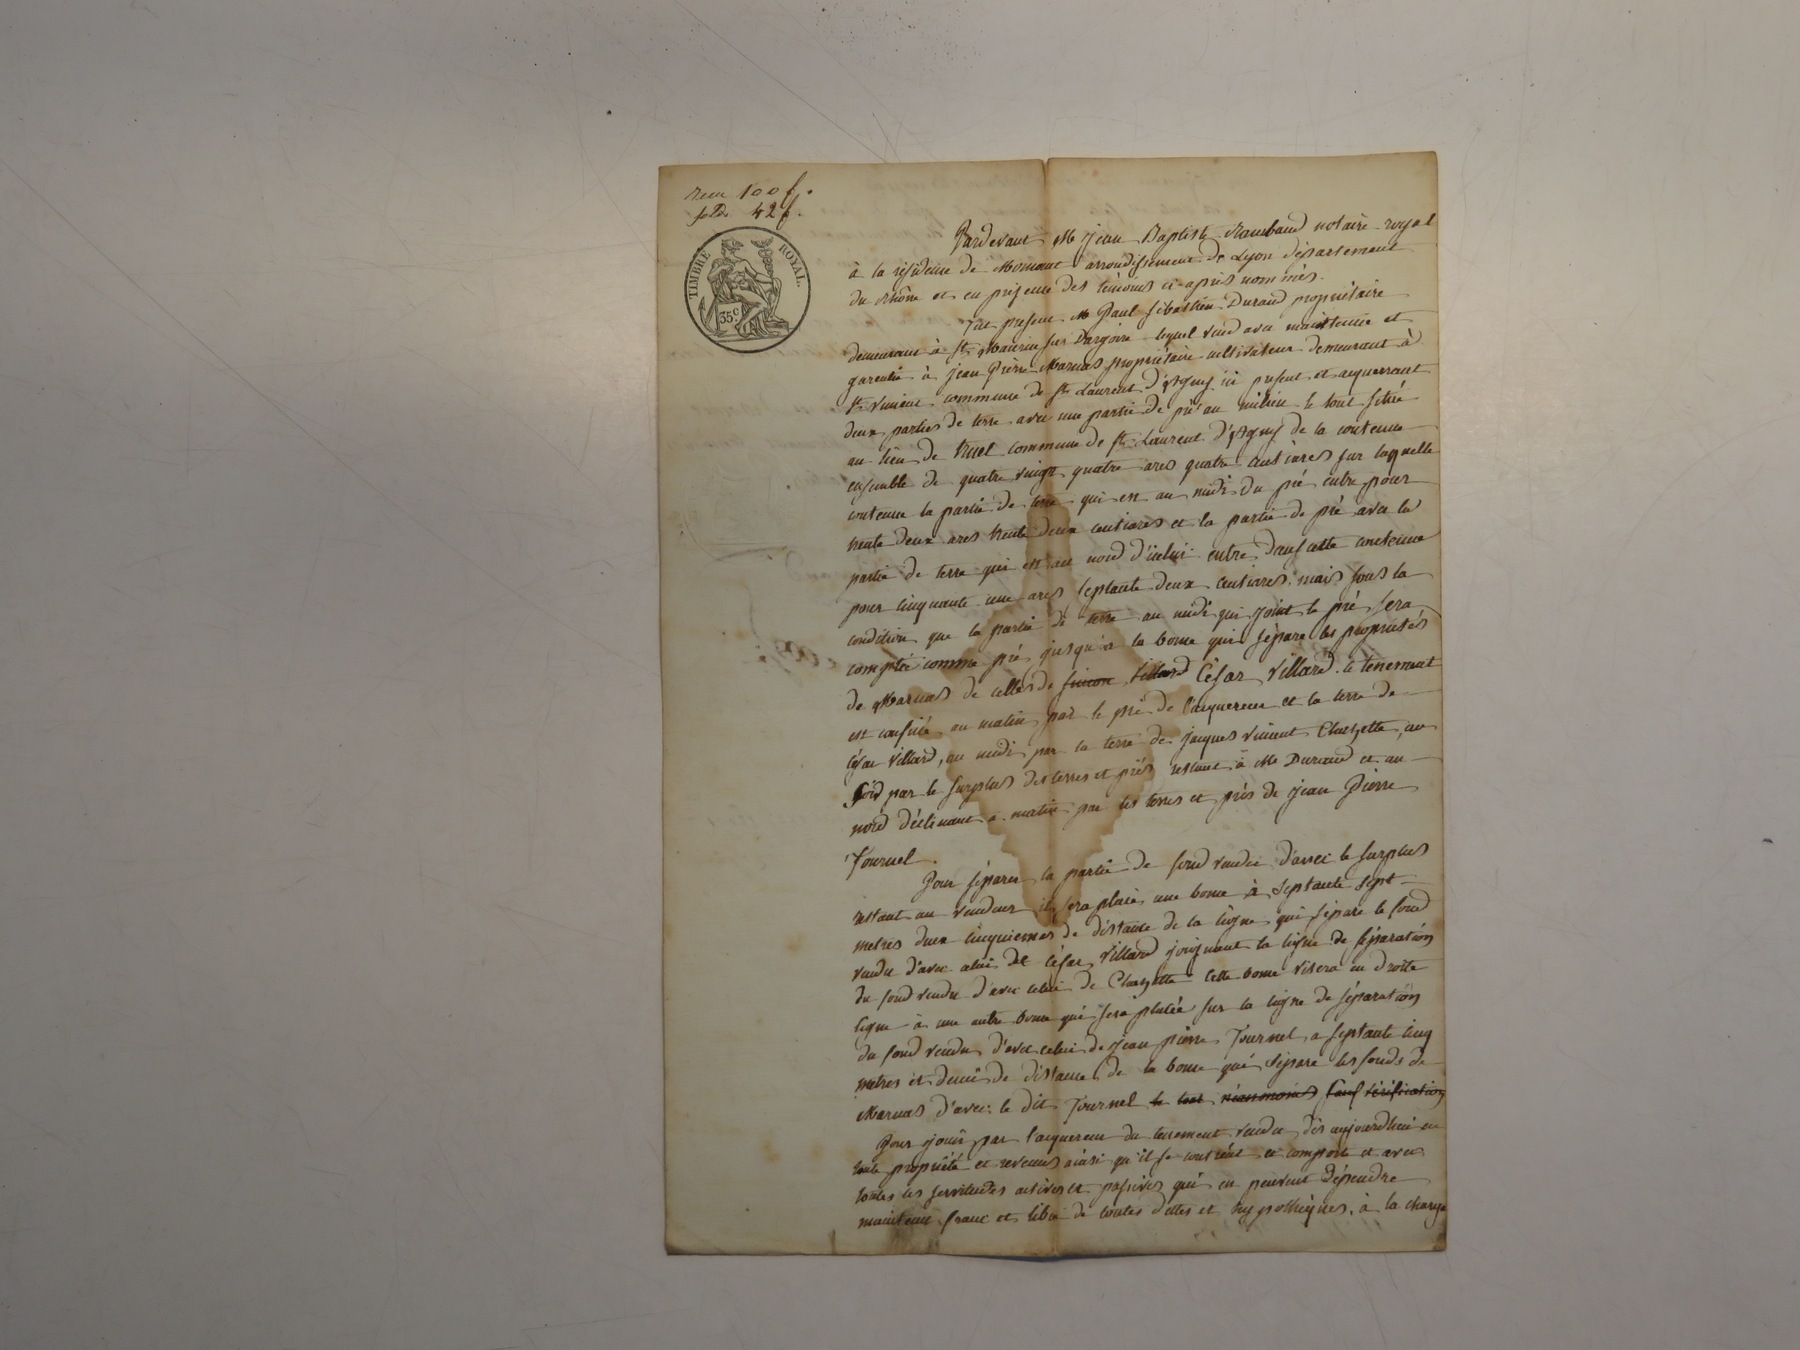 recu 100 f.
solde 42 f.
TIMBRE ROYAL
35 c
Pardevant Me jean Baptiste Raimbaud notaire royal
à la résidence de Mornant arrondissement de Lyon département
du rhône et en présence des témoins ci-après nommés.
fut présent M Paul sébastien Durand propriétaire
demeurant à St Maurice sur Dargoire lequel vend avec maintenue et
garentie à jean Pierre Marnas propriétaire cultivateur demeurant à
St Vincent commune de St Laurent d'Agny ici présent et acquerrant
deux parties de terre avec une partie de pré au milieu le tout situé
au lieu de commune de St Laurent d'Agny de la contenue
ensemble de quatre vingt quatre ares quatre centiares sur laquelle
contenue la partie de terre qui est au midi du pré entre pour
trente deux ares trente deux centiares et la partie de pré avec la
partie de terre qui est au nord d'icelui entre dans cette contenue
pour cinquante une ares septante deux centiares, mais sous la
condition que la partie de terre au midi qui joint le pré sera
comptée comme pré jusqu'à la borne qui sépare les propriétés
de Marnas de celles de Villard César Villard. ce tenement
est confiné au matin par le pré de l'acquereur et la terre de
César Villard, au midi par la terre de jacques vincent Chazette, au
soir par le surplus des terres et prés restant à Me Durand et au
nord déclinant a matin par les terres et prés de jean Pierre
Tournel.
Pour séparer la partie de fond vendu d'avec le surplus
restant au vendeur il sera placé une borne à septante sept
metres deux cinquiemes de distance de la ligne qui sépare le fond
vendu d'avec celui de César Villard joignant la ligne de séparation
du fond vendu d'avec celui de Chazette cette borne visera en droite
ligne à une autre borne qui sera placée sur la ligne de séparation
du fond vendu d'avec celui de jean pierre Tournel a septante cinq
metres et demi de distance de la borne qui sépare les fonds de
Marnas d'avec le dit Tournel le tout néanmoins sauf vérification
Pour jouir par l'acquereur du tenement vendu dès aujourdhui en
toute propriété et revenus ainsi qu'il se contient et comporte et avec
toutes les servitudes actives et passives qui en peuvent dépendre
maintenu franc et libre de toutes dettes et hypothèques, à la charge